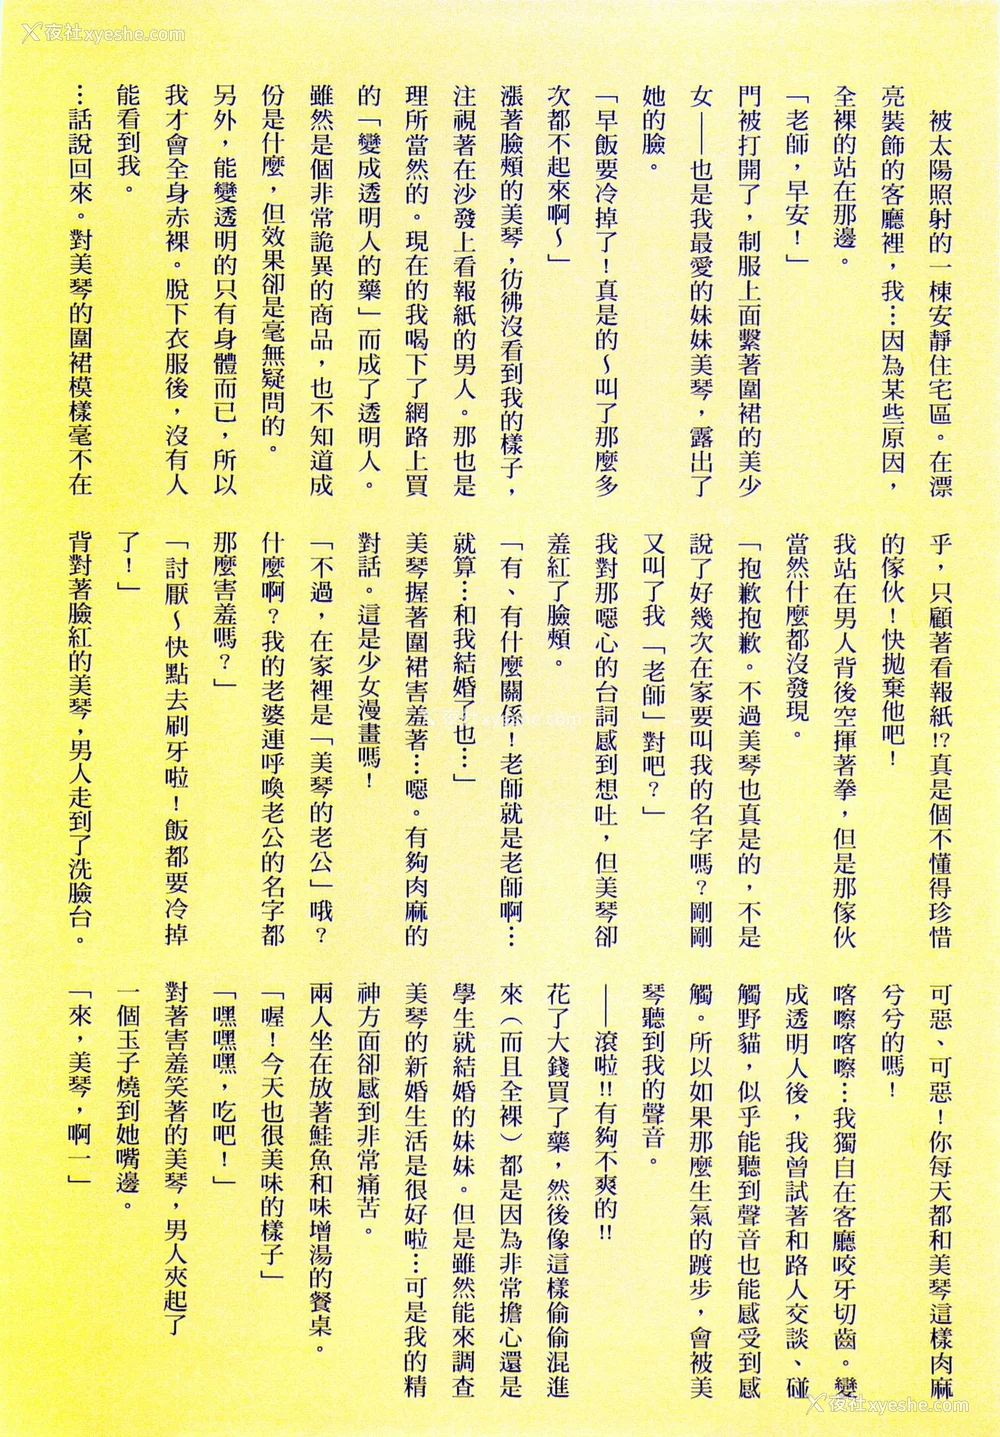 X夜社xyeshe.com
被太陽照射的一棟安靜住宅區。在漂
亮裝飾的客廳裡，我…因為某些原因，
全裸的站在那邊。
「老師，早安！」
門被打開了，制服上面繫著圍裙的美少
女——也是我最愛的妹妹美琴，露出了
她的臉。
「早飯要冷掉了！真是的～叫了那麼多
次都不起來啊～」
漲著臉頰的美琴，彷彿沒看到我的樣子，
注視著在沙發上看報紙的男人。那也是
理所當然的。現在的我喝下了網路上買
的「變成透明人的藥」而成了透明人。
雖然是個非常詭異的商品，也不知道成
份是什麼，但效果卻是毫無疑問的。
另外，能變透明的只有身體而已，所以
我才會全身赤裸。脫下衣服後，沒有人
能看到我。
…話說回來。對美琴的圍裙模樣毫不在
乎，只顧著看報紙!?真是個不懂得珍惜
的傢伙！快拋棄他吧！
我站在男人背後空揮著拳，但是那傢伙
當然什麼都沒發現。
「抱歉抱歉。不過美琴也真是的，不是
說了好幾次在家要叫我的名字嗎？剛剛
又叫了我「老師」對吧？」
我對那噁心的台詞感到想吐，但美琴卻
羞紅了臉頰。
「有、有什麼關係！老師就是老師啊…
就算…和我結婚了也…」
美琴握著圍裙害羞著…噁。有夠肉麻的
對話。這是少女漫畫嗎！
「不過，在家裡是「美琴的老公」哦？
什麼啊？我的老婆連呼喚老公的名字都
那麼害羞嗎？」
「討厭～快點去刷牙啦！飯都要冷掉
了！」
背對著臉紅的美琴，男人走到了洗臉台。
可惡、可惡！你每天都和美琴這樣肉麻
兮兮的嗎！
喀嚓喀嚓…我獨自在客廳咬牙切齒。變
成透明人後，我曾試著和路人交談、碰
觸野貓，似乎能聽到聲音也能感受到感
觸。所以如果那麼生氣的踱步，會被美
琴聽到我的聲音。
——滾啦!!有夠不爽的!!
花了大錢買了藥，然後像這樣偷偷混進
來（而且全裸）都是因為非常擔心還是
學生就結婚的妹妹。但是雖然能來調查
美琴的新婚生活是很好啦…可是我的精
神方面卻感到非常痛苦。
兩人坐在放著鮭魚和味增湯的餐桌。
「喔！今天也很美味的樣子」
「嘿嘿嘿，吃吧！」
對著害羞笑著的美琴，男人夾起了
一個玉子燒到她嘴邊。
「來，美琴，啊一」
X夜社xyeshe.com